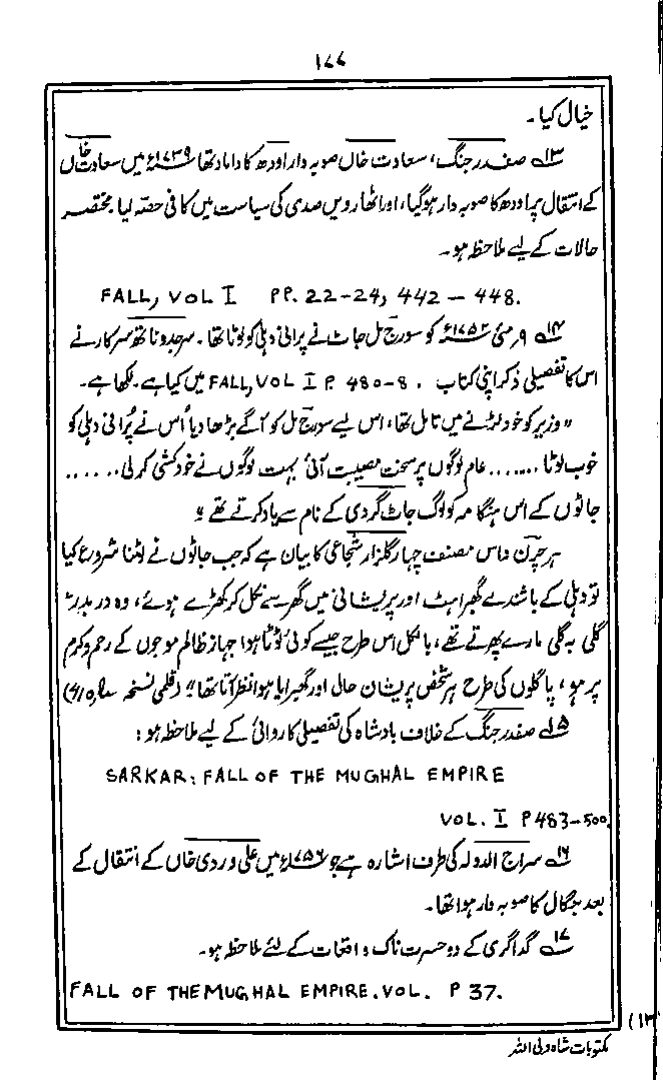 ۱۷۷
خیال کیا۔
۱۳؎ صفدر جنگ، سعادت خاں صوبہ دار اودھ کا داماد تھا ۱۷۳۹ء میں سعادت خاں
کے انتقال پر اودھ کا صوبہ دار ہوگیا، اور اٹھارویں صدی کی سیاست میں کافی حصہ لیا مختصر
حالات کے لیے ملاحظہ ہو۔
FALL, VOL I PP. 22-24, 442 - 448.
۱۴؎ ۹ مئی ۱۷۵۳ء کو سورج مل جاٹ نے پرانی دہلی کو لوٹا تھا۔ سرجدوناتھ سرکار نے
اس کا تفصیلی ذکر اپنی کتاب FALL, VOL I P. 480-8. میں کیا ہے۔ لکھا ہے۔
"وزیر کو خود لڑنے میں تامل تھا، اس لیے سورج مل کو آگے بڑھا دیا اُس نے پُرانی دہلی کو
خوب لوٹا ....... عام لوگوں پر سخت مصیبت آئی بہت لوگوں نے خودکشی کرلی ......
جاٹوں کے اس ہنگامہ کو لوگ جاٹ گردی کے نام سے یاد کرتے تھے"
ہرچرن داس مصنف چہار گلزار شجاعی کا بیان ہے کہ جب جاٹوں نے لوٹنا شروع کیا
تو دہلی کے باشندے گھبراہٹ اور پریشانی میں گھر سے نکل کر کھڑے ہوئے، وہ در بدر
گلی بہ گلی مارے پھرتے تھے، بالکل اس طرح جیسے کوئی ٹوٹا ہوا جہاز ظالم موجوں کے رحم وکرم
پر ہو، پاگلوں کی طرح ہر شخص پریشان حال اور گھبرایا ہوا نظر آتا تھا" (قلمی نسخہ
۱۵؎ صفدر جنگ کے خلاف بادشاہ کی تفصیلی کاروائی کے لیے ملاحظہ ہو:
SARKAR: FALL OF THE MUGHAL EMPIRE
VOL. I P 483-500.
۱۶؎ سراج الدولہ کی طرف اشارہ ہے جو ۱۷۵۶ء میں علی وردی خاں کے انتقال کے
بعد بنگال کا صوبہ دار ہوا تھا۔
۱۷؎ گداگری کے دو حسرت ناک واقعات کے لئے ملاحظہ ہو۔
FALL OF THE MUGHAL EMPIRE. VOL. P 37.
(۱۳
مکتوبات شاہ ولی اللہ